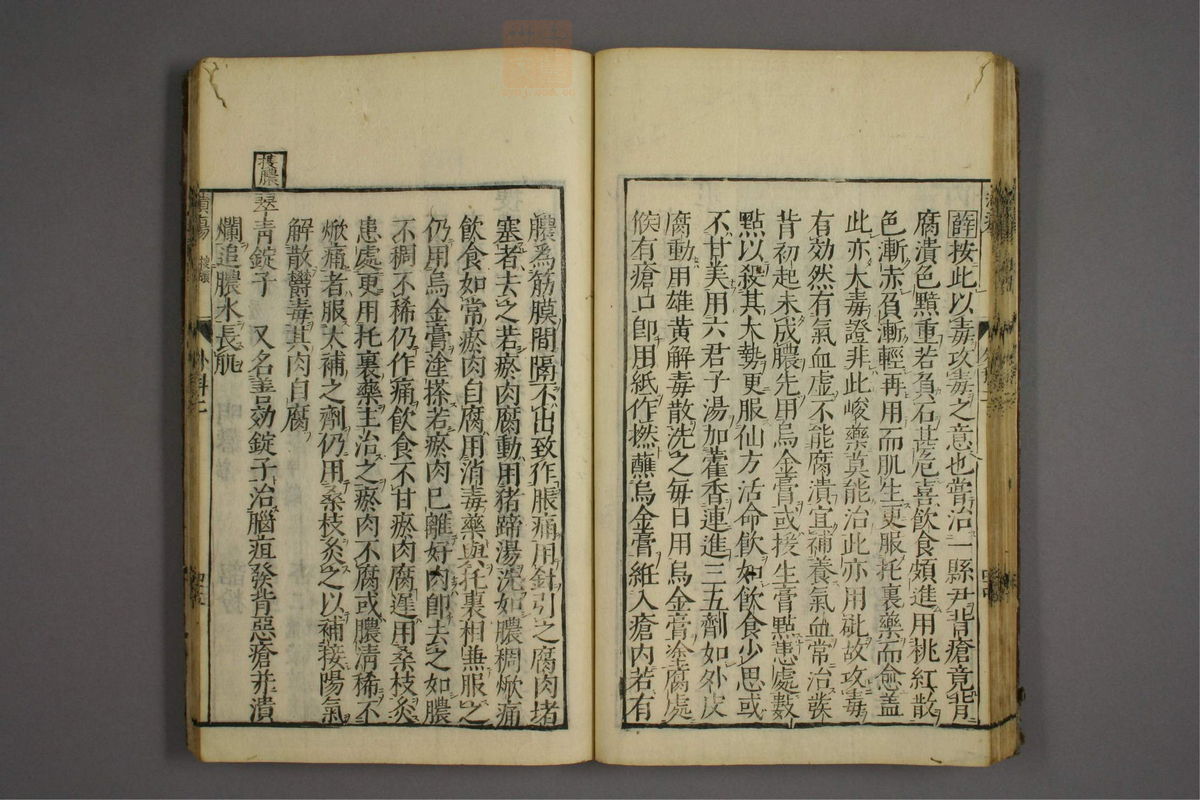 薛按此以毒攻毒之意也嘗治一縣尹背瘡竟背
腐潰色黯重若負石甚危喜飲食頗進用桃紅散
色漸赤負漸輕再用而肌生更服托裏藥而愈蓋
此亦大毒證非此峻藥莫能治此亦用砒故攻毒
有効然有氣血虛不能腐潰宜補養氣血常治發
背初起未成膿先用烏金膏或援生膏點患處數
點以殺其大勢更服仙方活命飲如飲食少思或
不甘美用六君子湯加藿香連進三五劑如外皮
腐動用雄黃解毒散洗之每日用烏金膏塗腐處
候有瘡口即用紙作撚蘸烏金膏紙入瘡內若有
膿爲筋膜間隔不出致作脹痛用針引之腐肉堵
塞者去之若瘀肉腐動用猪蹄湯洗如膿稠焮痛
飲食如常瘀肉自腐用消毒藥與托裏相兼服之
仍用烏金膏塗搽若瘀肉已離好肉即去之如膿
不稠不稀仍作痛飲食不甘瘀肉腐遲用桑枝灸
患處更用托裏藥主治之瘀肉不腐或膿清稀不
焮痛者服大補之劑仍用桑枝灸之以補接陽氣
解散欝毒其肉自腐
搜膿
翠青錠子　又名善効錠子治腦疽發背惡瘡并潰
爛追膿水長肌
潰瘍
搜膿
外科二
四十五